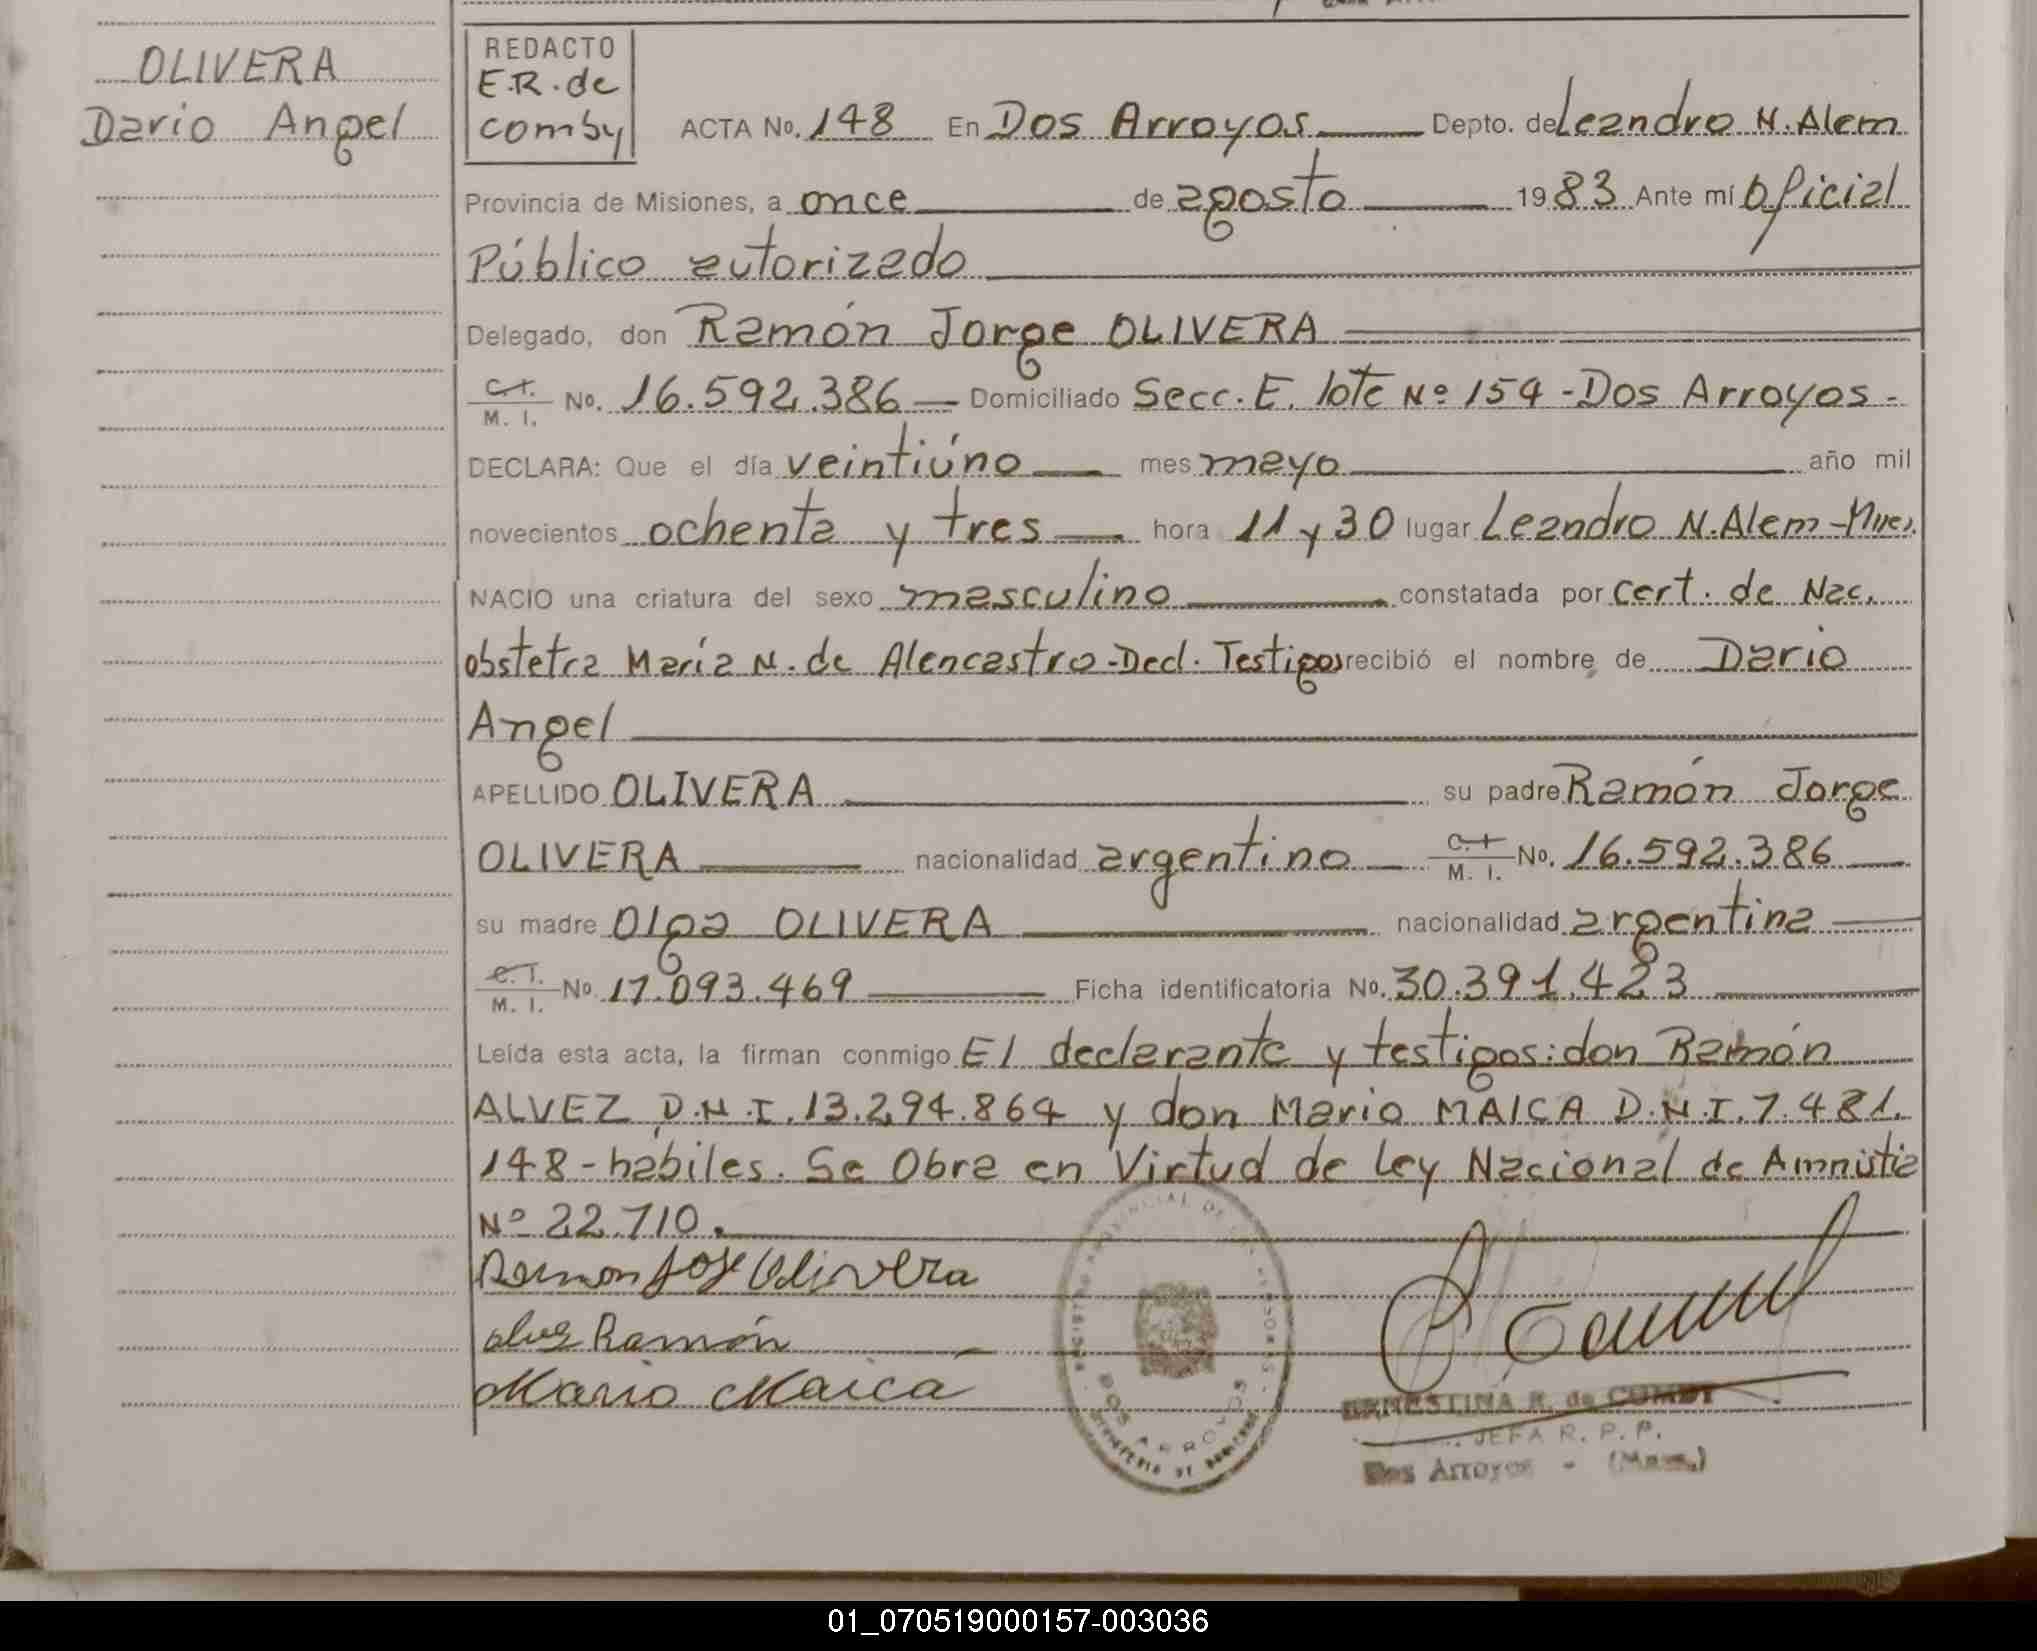 OLIVERA
Dario Angel
REDACTO
E.R. de
comby
ACTA No. 148 En Dos Arroyos Depto. de Leandro N. Alem
Provincia de Misiones, a once de agosto 1983 Ante mí Oficial
Público autorizado
Delegado, don Ramón Jorge OLIVERA
C.I. M. I. No. 16.592.386 Domiciliado Secc. E. lote Nº 154 - Dos Arroyos -
DECLARA: Que el día veintiúno mes mayo año mil
novecientos ochenta y tres hora 11 y 30 lugar Leandro N. Alem - Mnes.
NACIO una criatura del sexo masculino constatada por Cert. de Nac.
obstetra María N. de Alencastro - Decl. Testigos recibió el nombre de Dario
Angel
APELLIDO OLIVERA su padre Ramón Jorge
OLIVERA nacionalidad argentino C.I. M. I. No. 16.592.386
su madre Olga OLIVERA nacionalidad argentina
C.I. M. I. No. 17.093.469 Ficha identificatoria No. 30.391.423
Leída esta acta, la firman conmigo El declarante y testigos: don Ramón
ALVEZ D.N.I. 13.294.864 y don Mario MAICA D.N.I. 7.481.
148 - hábiles. Se Obra en Virtud de Ley Nacional de Amnistia
Nº 22.710.
Ramon Jorge Olivera
alvez Ramón
Mario Maica
DOS ARROYOS
ERNESTINA R. de COMBY
JEFA R. P. P.
Dos Arroyos - (Mnes.)
01_070519000157-003036